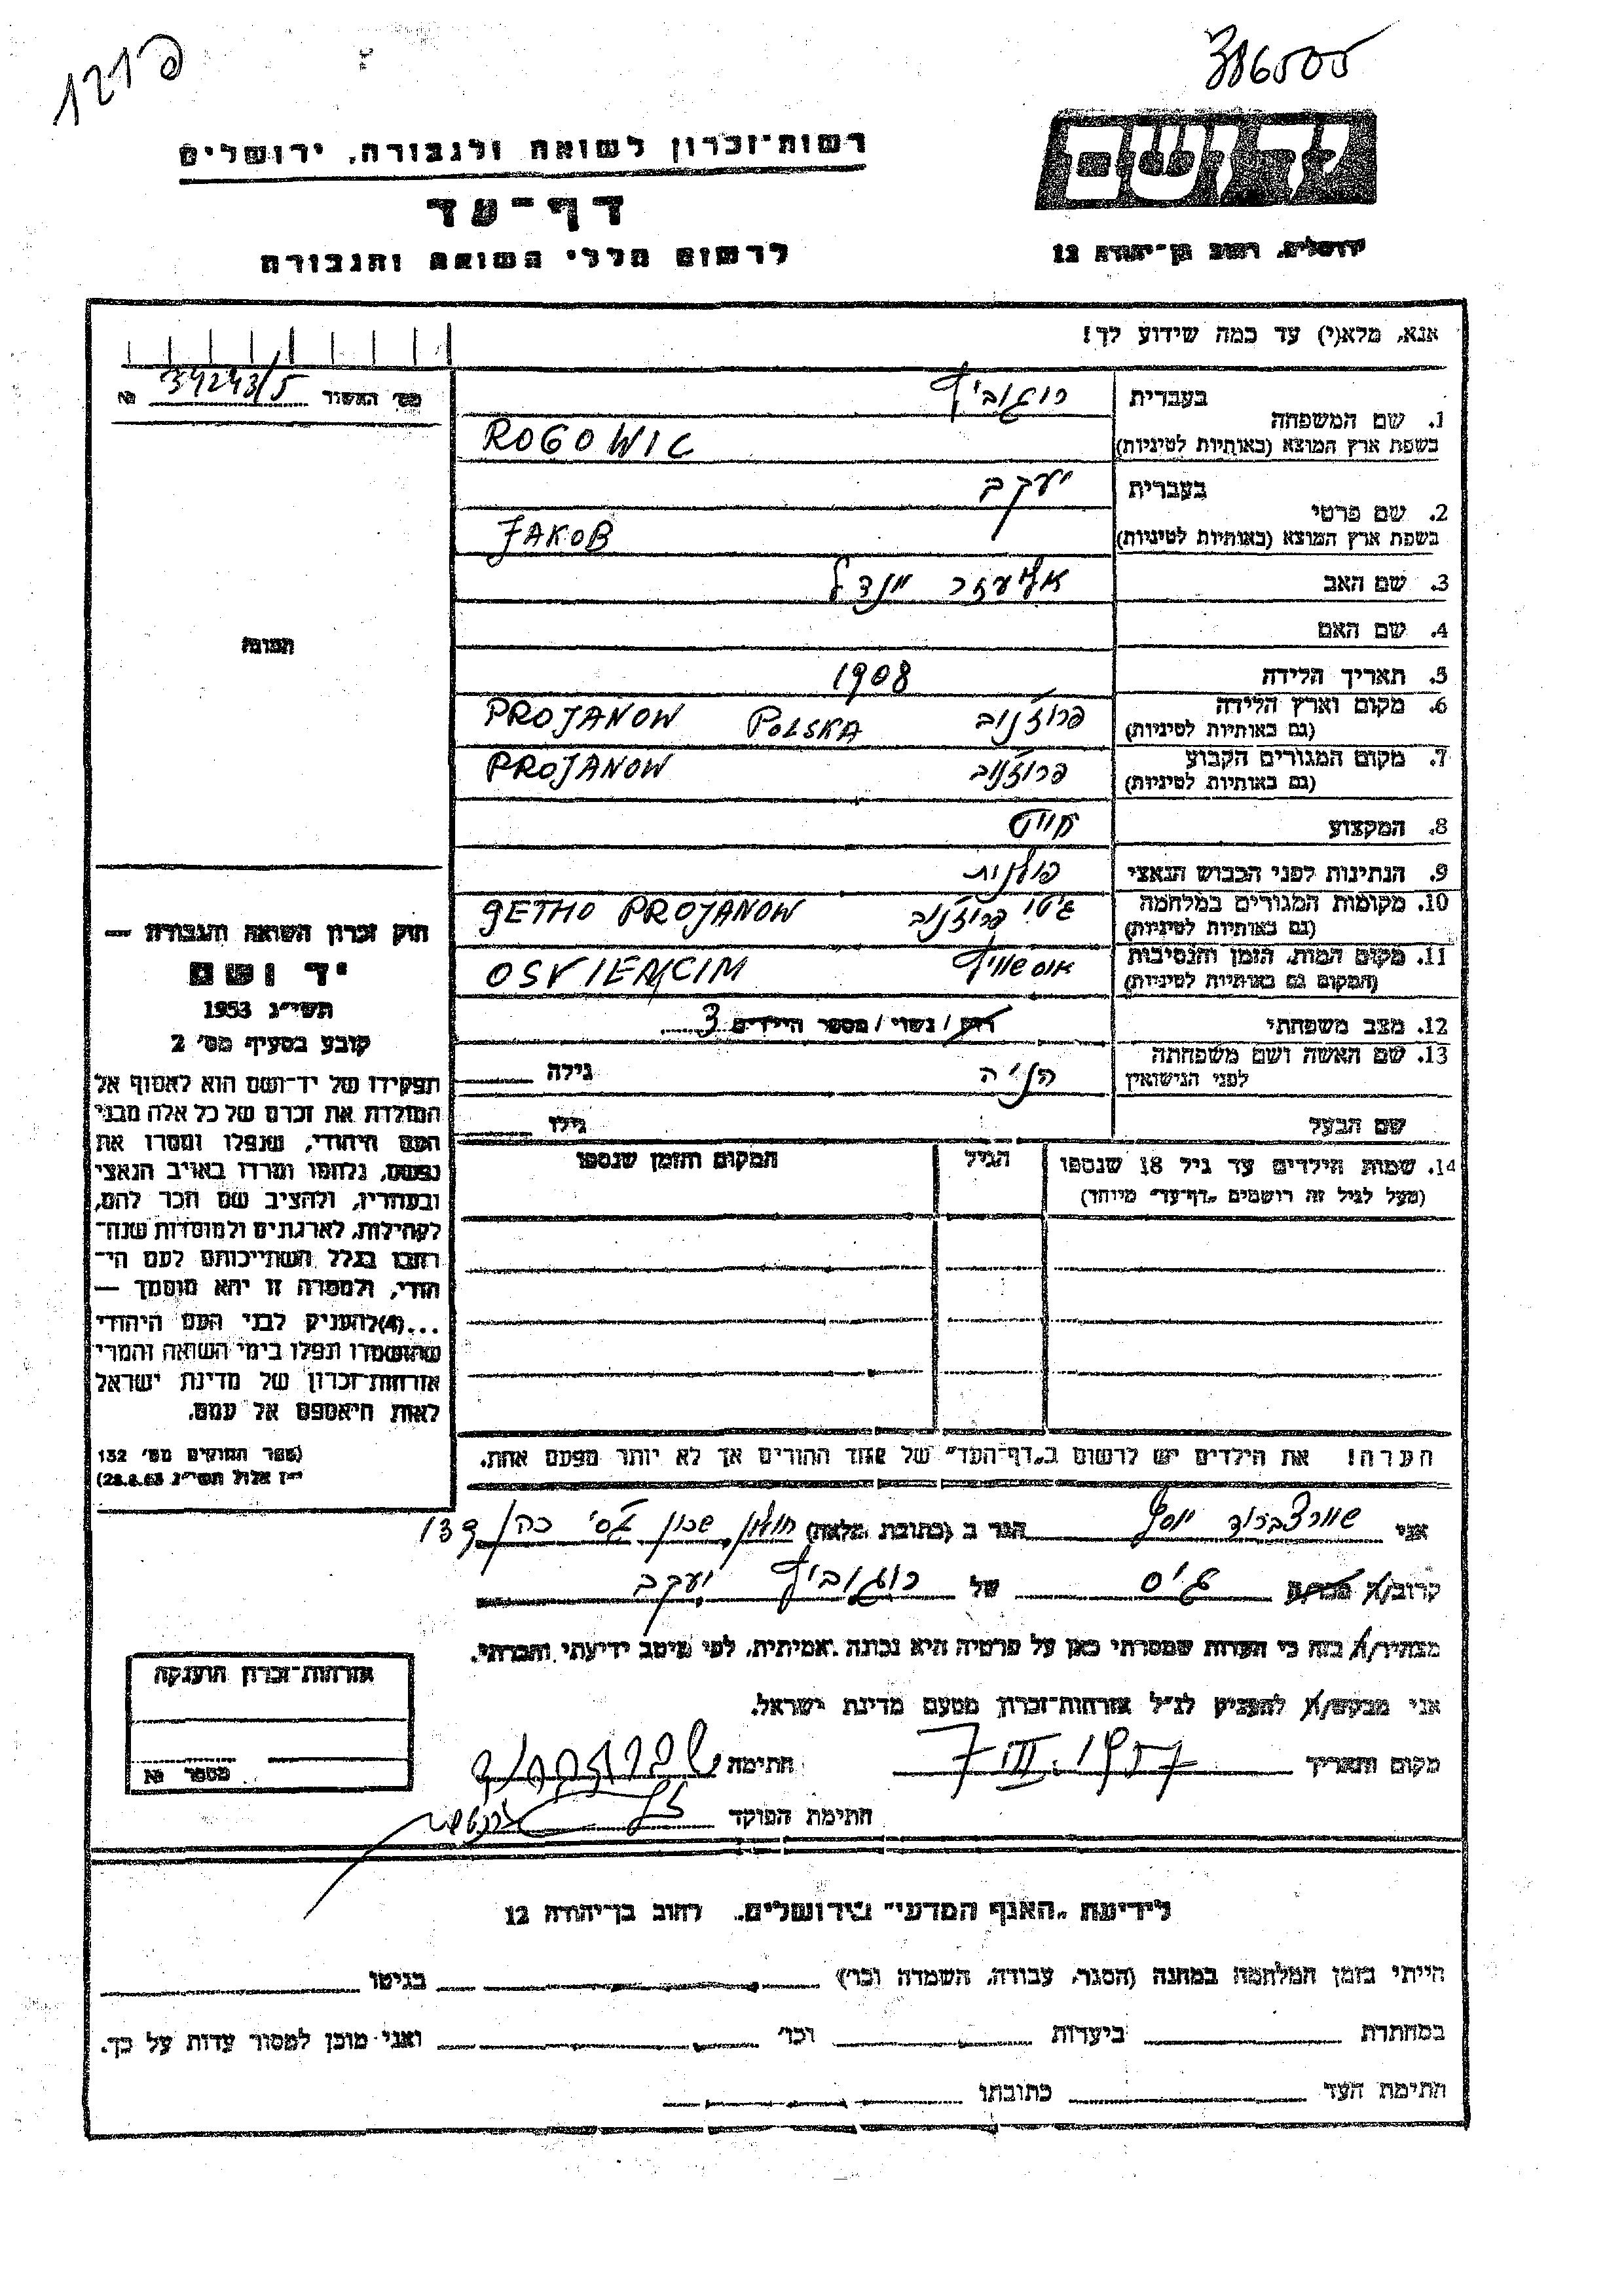 386505
יד ושם
ירושלים, רחוב בן־יהודה 12
רשות־זכרון לשואה ולגבורה, ירושלים
דף־עד
לרשום חללי השואה והגבורה
אנא, מלא(י) עד כמה שידוע לך!
מס׳ האשור 34243/5 №
התמונה
1. שם המשפחה
בעברית רוגוביץ
בשפת ארץ המוצא (באותיות לטיניות) ROGOWIC
2. שם פרטי
בעברית יעקב
בשפת ארץ המוצא (באותיות לטיניות) JAKOB
3. שם האב אליעזר מנדל
4. שם האם
5. תאריך הלידה 1908
6. מקום וארץ הלידה פרוז'נוב PROJANOW POLSKA
(גם באותיות לטיניות)
7. מקום המגורים הקבוע פרוז'נוב PROJANOW
(גם באותיות לטיניות)
8. המקצוע חייט
9. הנתינות לפני הכבוש הנאצי פולנית
10. מקומות המגורים במלחמה גיטו פרוז'נוב GETHO PROJANOW
(גם באותיות לטיניות)
11. מקום המות, הזמן והנסיבות אוסשוויץ OSVIENCIM
(המקום גם באותיות לטיניות)
12. מצב משפחתי רווק / נשוי / מספר הילדים 3
13. שם האשה ושם משפחתה גילה
לפני הנישואין
שם הבעל גילו
14. שמות הילדים עד גיל 18 שנספו הגיל המקום והזמן שנספו
(מעל לגיל זה רושמים „דף־עד״ מיוחד)
הערה! את הילדים יש לרשום ב„דף־העד״ של אחד ההורים אך לא יותר מפעם אחת.
חוק זכרון השואה והגבורה —
יד ושם
תשי״ג 1953
קובע בסעיף מס׳ 2
תפקידו של יד־ושם הוא לאסוף אל
המולדת את זכרם של כל אלה מבני
העם היהודי, שנפלו ומסרו את
נפשם, נלחמו ומרדו באויב הנאצי
ובעוזריו, ולהציב שם וזכר להם,
לקהילות, לארגונים ולמוסדות שנח־
רבו בגלל השתייכותם לעם הי־
הודי, ולמטרה זו יהא מוסמך —
...(4) להעניק לבני העם היהודי
שהושמדו ונפלו בימי השואה והמרי
אזרחות־זכרון של מדינת ישראל
לאות היאספם אל עמם.
(ספר החוקים מס׳ 132
י״ז אלול תשי״ג 28.8.53)
אני שוורצברוד יוסף הגר ב (כתובת מלאה) חולון שכון כהן 139
קרוב/ה מכר/ה גיס של רוגוביץ יעקב
מצהיר/ה בזה כי העדות שמסרתי כאן על פרטיה היא נכונה ואמיתית, לפי מיטב ידיעתי והכרתי.
אני מבקש/ת להעניק לנ״ל אזרחות־זכרון מטעם מדינת ישראל.
מקום ותאריך 7 III. 1957 חתימה
חתימת הפוקד
אזרחות־זכרון הוענקה
מספר №
לידיעת „האגף המדעי״ בירושלים, רחוב בן־יהודה 12
הייתי בזמן המלחמה במחנה (הסגר, עבודה, השמדה וכו׳) בגיטו
במחתרת ביערות וכו׳ ואני מוכן למסור עדות על כך.
חתימת העד כתובתו